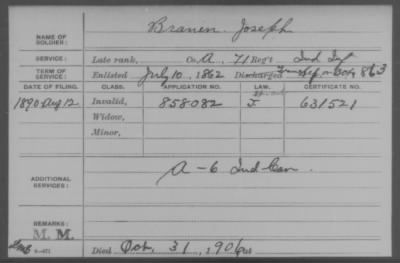 NAME OF SOLDIER: Branen Joseph
SERVICE: Late rank, Co. A, 71 Reg't Ind Inf
TERM OF SERVICE: Enlisted July 10, 1862 Discharged 1863
DATE OF FILING. CLASS. APPLICATION NO. LAW. CERTIFICATE NO.
1890 Aug 12 Invalid, 858082 J. 631521
Widow,
Minor,
ADDITIONAL SERVICES: A-6 Ind Cav.
REMARKS:
M. M.
Died Oct. 31, 1906 at